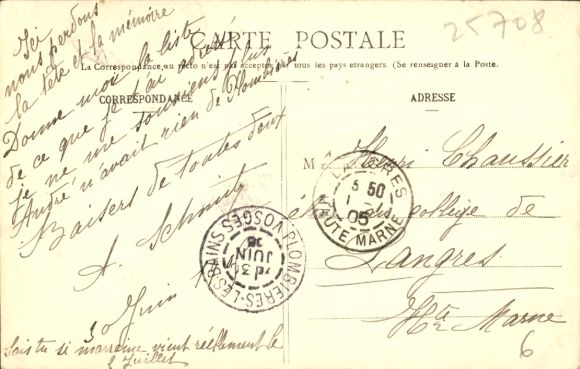 25708
CARTE POSTALE
La Correspondance au recto n'est pas acceptée par tous les pays étrangers. (Se renseigner à la Poste.
CORRESPONDANCE
ADRESSE
Ici
nous perdons
la tête et la mémoire
Donne moi la liste
de ce que je t'ai
je ne me souviens plus
André n'avait rien de Plombières
Baisers de toutes deux
A. Schmit
30 Juin
Sais tu si marraine vient réellement le
2 Juillet
M Henri Chaussier
au collège de
Langres
Hte Marne
LANGRES
5 50
05
HAUTE MARNE
PLOMBIERES-LES-BAINS
VOSGES
JUIN
6